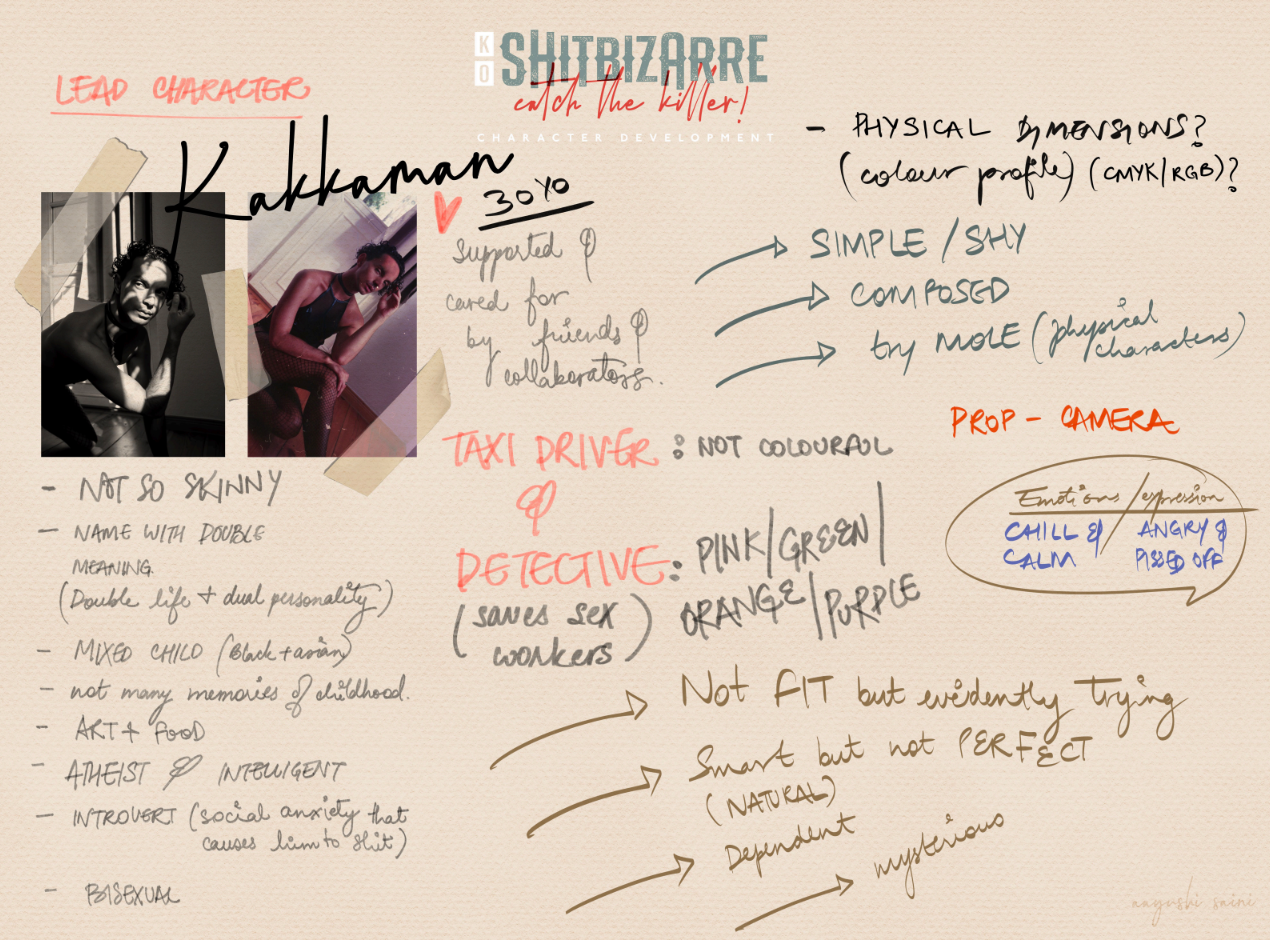 KO SHITBIZARRE
catch the killer!
CHARACTER DEVELOPMENT
LEAD CHARACTER
Kakkaman
30YO
Supported &
cared for
by friends &
collaborators.
- PHYSICAL DIMENSIONS?
(colour profile) (CMYK/RGB)?
SIMPLE / SHY
COMPOSED
try MOLE (physical
characters)
PROP - CAMERA
Emotions / expression
CHILL &
CALM
ANGRY &
PISSED OFF
TAXI DRIVER : NOT COLOURFUL
&
DETECTIVE : PINK/GREEN/
ORANGE/PURPLE
(saves sex
workers)
- NOT SO SKINNY
- NAME WITH DOUBLE
MEANING.
(Double life + dual personality)
- MIXED CHILD (Black + asian)
- not many memories of childhood.
- ART + FOOD
- ATHEIST & INTELLIGENT
- INTROVERT (social anxiety that
causes him to shit)
- BISEXUAL
Not FIT but evidently trying
Smart but not PERFECT
(NATURAL)
Dependent
mysterious
aayushi saini